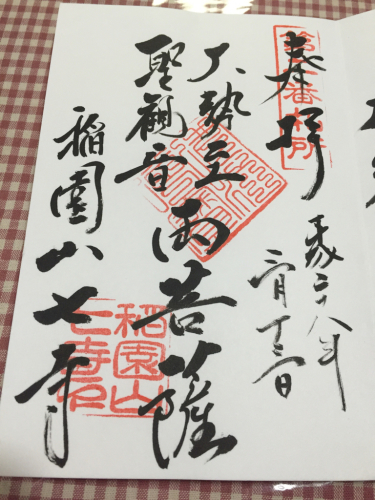 奉拝
平成二十八年
大勢至
聖観音
両菩薩
稲園山七寺
稲園山
七寺印